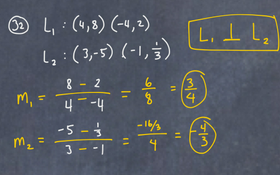 32) L₁ : (4,8) (-4,2)
L₁ ⊥ L₂
L₂ : (3,-5) (-1, 1/3)
m₁ = (8 - 2)/(4 - -4) = 6/8 = 3/4
m₂ = (-5 - 1/3)/(3 - -1) = (-16/3)/4 = -4/3